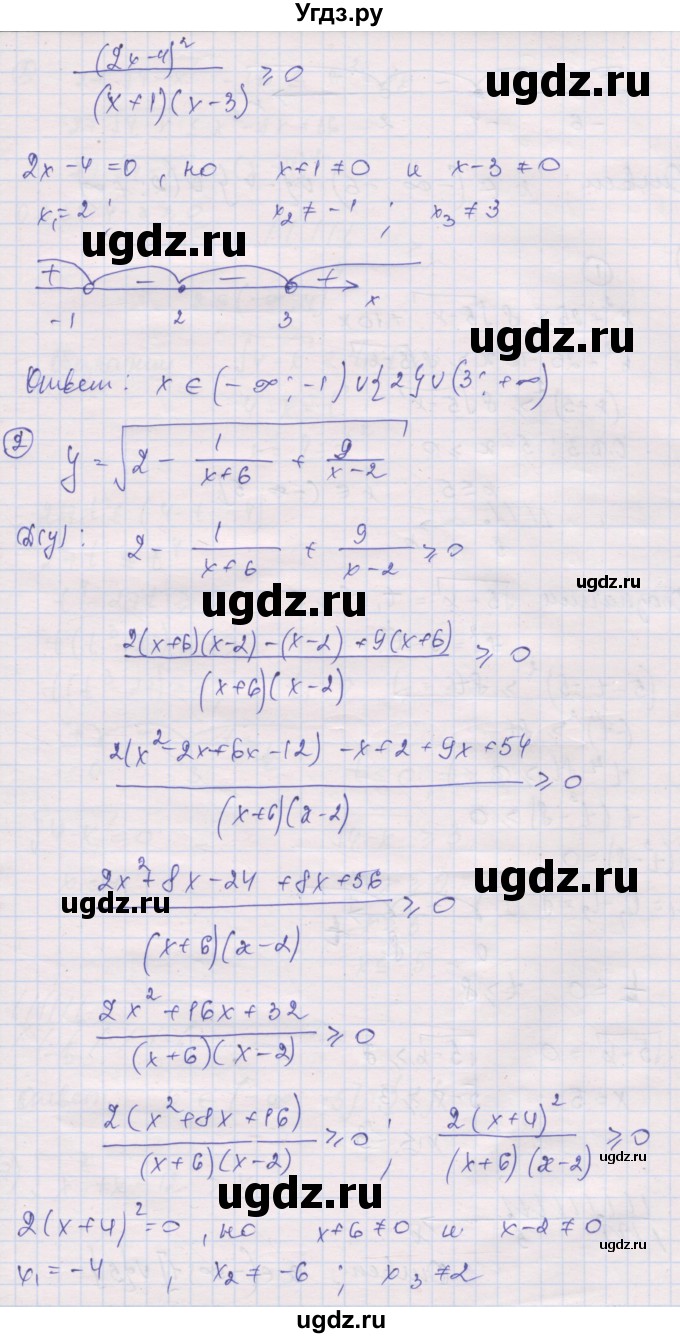 Угдз.ру
(2x-4)² / (x+1)(x-3) ≥ 0
ugdz.ru
2x-4=0, но x+1≠0 и x-3≠0
x₁=2; x₂≠-1; x₃≠3
ugdz.ru
+ - - + x
-1 2 3
ugdz.ru
Ответ: x∈(-∞;-1)∪{2}∪(3;+∞)
2 y=√(2 - 1/(x+6) + 9/(x-2))
D(y): 2 - 1/(x+6) + 9/(x-2) ≥ 0
ugdz.ru
ugdz.ru
(2(x+6)(x-2)-(x-2)+9(x+6)) / ((x+6)(x-2)) ≥ 0
ugdz.ru
(2(x²-2x+6x-12)-x+2+9x+54) / ((x+6)(x-2)) ≥ 0
(2x²+8x-24+8x+56) / ((x+6)(x-2)) ≥ 0
ugdz.ru
ugdz.ru
(2x²+16x+32) / ((x+6)(x-2)) ≥ 0
ugdz.ru
2(x²+8x+16) / ((x+6)(x-2)) ≥ 0; 2(x+4)² / ((x+6)(x-2)) ≥ 0
ugdz.ru
ugdz.ru
2(x+4)²=0, но x+6≠0 и x-2≠0
ugdz.ru
x₁=-4, x₂≠-6; x₃≠2
ugdz.ru